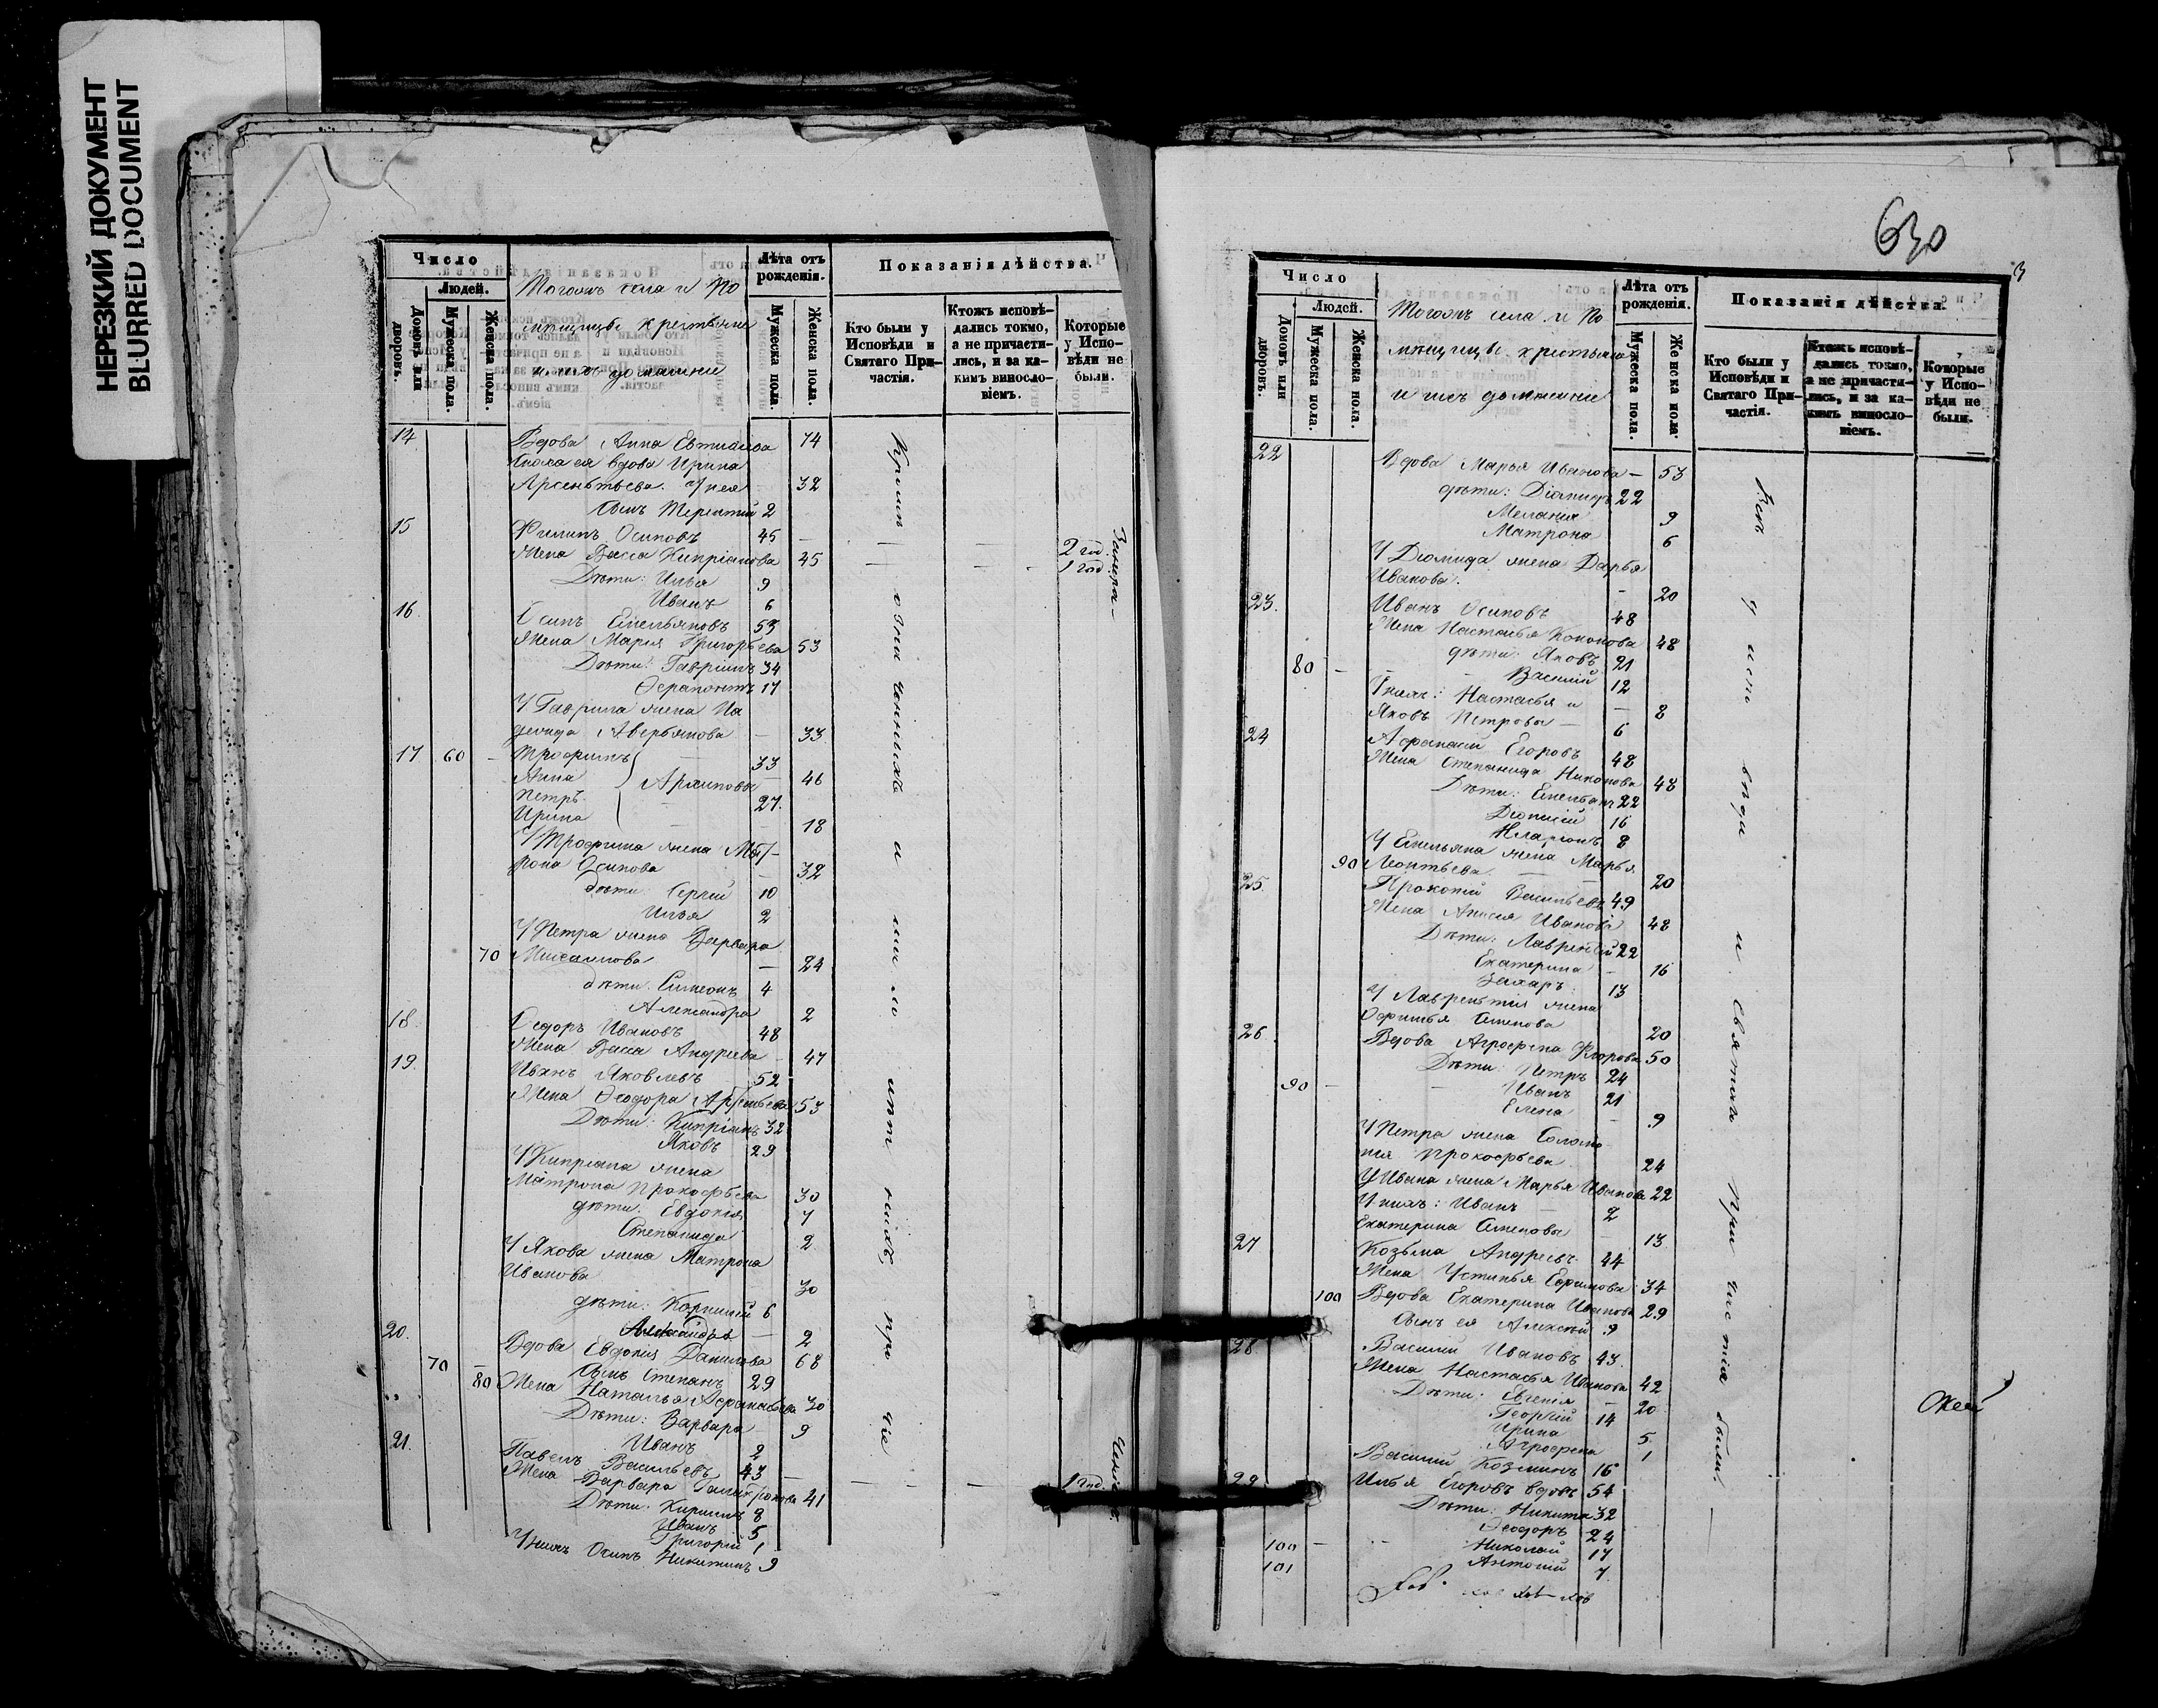 НЕРЕЗКИЙ ДОКУМЕНТ
BLURRED DOCUMENT
Число
Людей.
Домовъ или дворовъ.
Мужеска пола.
Женска пола.
Тогожъ села и По
мѣщицы крестьяне
и ихъ домашние
Лѣта отъ рожденія.
Мужеска пола.
Женска пола.
Показанія дѣйства.
Кто были у Исповѣди и Святаго Причастія.
Ктожъ исповѣдались токмо, а не причастились, и за какимъ винословіемъ.
Которые у Исповѣди не были.
14 Вдова Анна 74
Сноха ея вдова Ирина
Арсентьева. У нея 32
сынъ Терентий 2
15 Филипъ Осиповъ 45 — — 2 год.
Жена Васса Кипріанова 45 — — - 1 год
Дѣти: Илья 9
Иванъ 6
16. Осипъ Емельяновъ 53
Жена Марія Григорьева 53
Дѣти: Гавриилъ 34
Ѳерапонтъ 17
У Гаврила жена На
дежда Аверьянова — 33
17 60 — Трофимъ 33
Анна Архиповы 46
Петръ 27.
Ирина 18
У Трофима жена Мат-
рона Осипова — 32
дѣти Сергій 10
Илья 2
У Петра жена Варвара
70 Михаилова — 24
дѣти. Симеонъ 4
Александра 2
18. Ѳедоръ Ивановъ 48
Жена Васса Андреева 47
19. Иванъ Яковлевъ 52
Жена Ѳеодора 53
Дѣти: Кипріанъ 32
Яковъ 29
У Кипріана жена
Матрона Прокофьева 30
дѣти: Евдокія 7
Степанида 2
У Якова жена Матрона
Иванова 30
дѣти: Корнилій 6
— 2
20. Вдова Евдокия Данилова 68
70 — Сынъ Степанъ 29
80 Жена Наталья Афанасьева 30
Дѣти: Варвара 9
Иванъ 2
21. Павелъ Васильевъ 43 —
Жена Варвара 41 — — 1 год.
Дѣти: Кирилъ 8
Иванъ 5
Григорій 1
У нихъ Осипъ Никитинъ 9
630
3
Число
Людей.
Домовъ или дворовъ.
Мужеска пола.
Женска пола.
Тогожъ села и По
мѣщицы крестьяне
и ихъ домашние
Лѣта отъ рожденія.
Мужеска пола.
Женска пола.
Показанія дѣйства.
Кто были у Исповѣди и Святаго Причастія.
Ктожъ исповѣдались токмо, а не причастились, и за какимъ винословіемъ.
Которые у Исповѣди не были.
22 Вдова Марья Иванова — 53
дѣти: Діомидъ 22
Мелания 9
Матрона 6
У Диомида жена Дарья
Иванова. - 20
23. Иванъ Осиповъ 48
Жена Настасья Кононова 48
дѣти: Яковъ 21
80 — Василій 12
У нихъ: Настасья и — 8
Яковъ Петровы — 6
24 Афанасий Егоровъ 48
Жена Степанида Никонова 48
Дѣти: Емельянъ 22
Дионисій 16
Иларіонъ 8
У Емельяна жена Марья
90 Леонтьева. — 20
25. Прокопій Васильевъ 49
Жена Анисія Иванова 48
Дѣти: Лаврентій 22
Екатерина — 16
Захаръ 13
У Лаврентія жена
Семенова 20
26. Вдова Агрофена Егорова 50
Дѣти: Петръ 24
90 — Иванъ 21
Елена — 9
У Петра жена Соломо
нія Прокофьева 24
У Ивана жена Марья Иванова 22
У нихъ: Иванъ — 2
Екатерина Семеновы — 13
27 Козьма Андреевъ 44
Жена Устинья Ефимова 34
100 Вдова Екатерина Иванова 29
Сынъ ея Алексей 9
28. Василій Ивановъ 43.
Жена Настасья Иванова 42
Дѣти: Евгения — 20
Георгій 14
Ирина 5
Агрофена 1
Василій Козминъ 16
29 Илья Егоровъ вдовъ 54
Дѣти: Никита 32
Ѳеодоръ 24
100 — Николай 17
101 Антоній 7
Всѣ у исповѣди и Святаго Причастія были. —